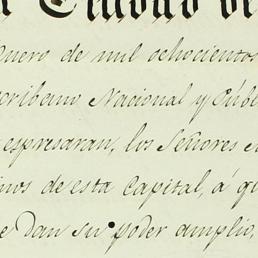 Ciudad de
nero de mil ochocientos
cribano Nacional y Públi
espresaran, los Señores
inos de esta Capital, á qu
e Dan su poder amplio,